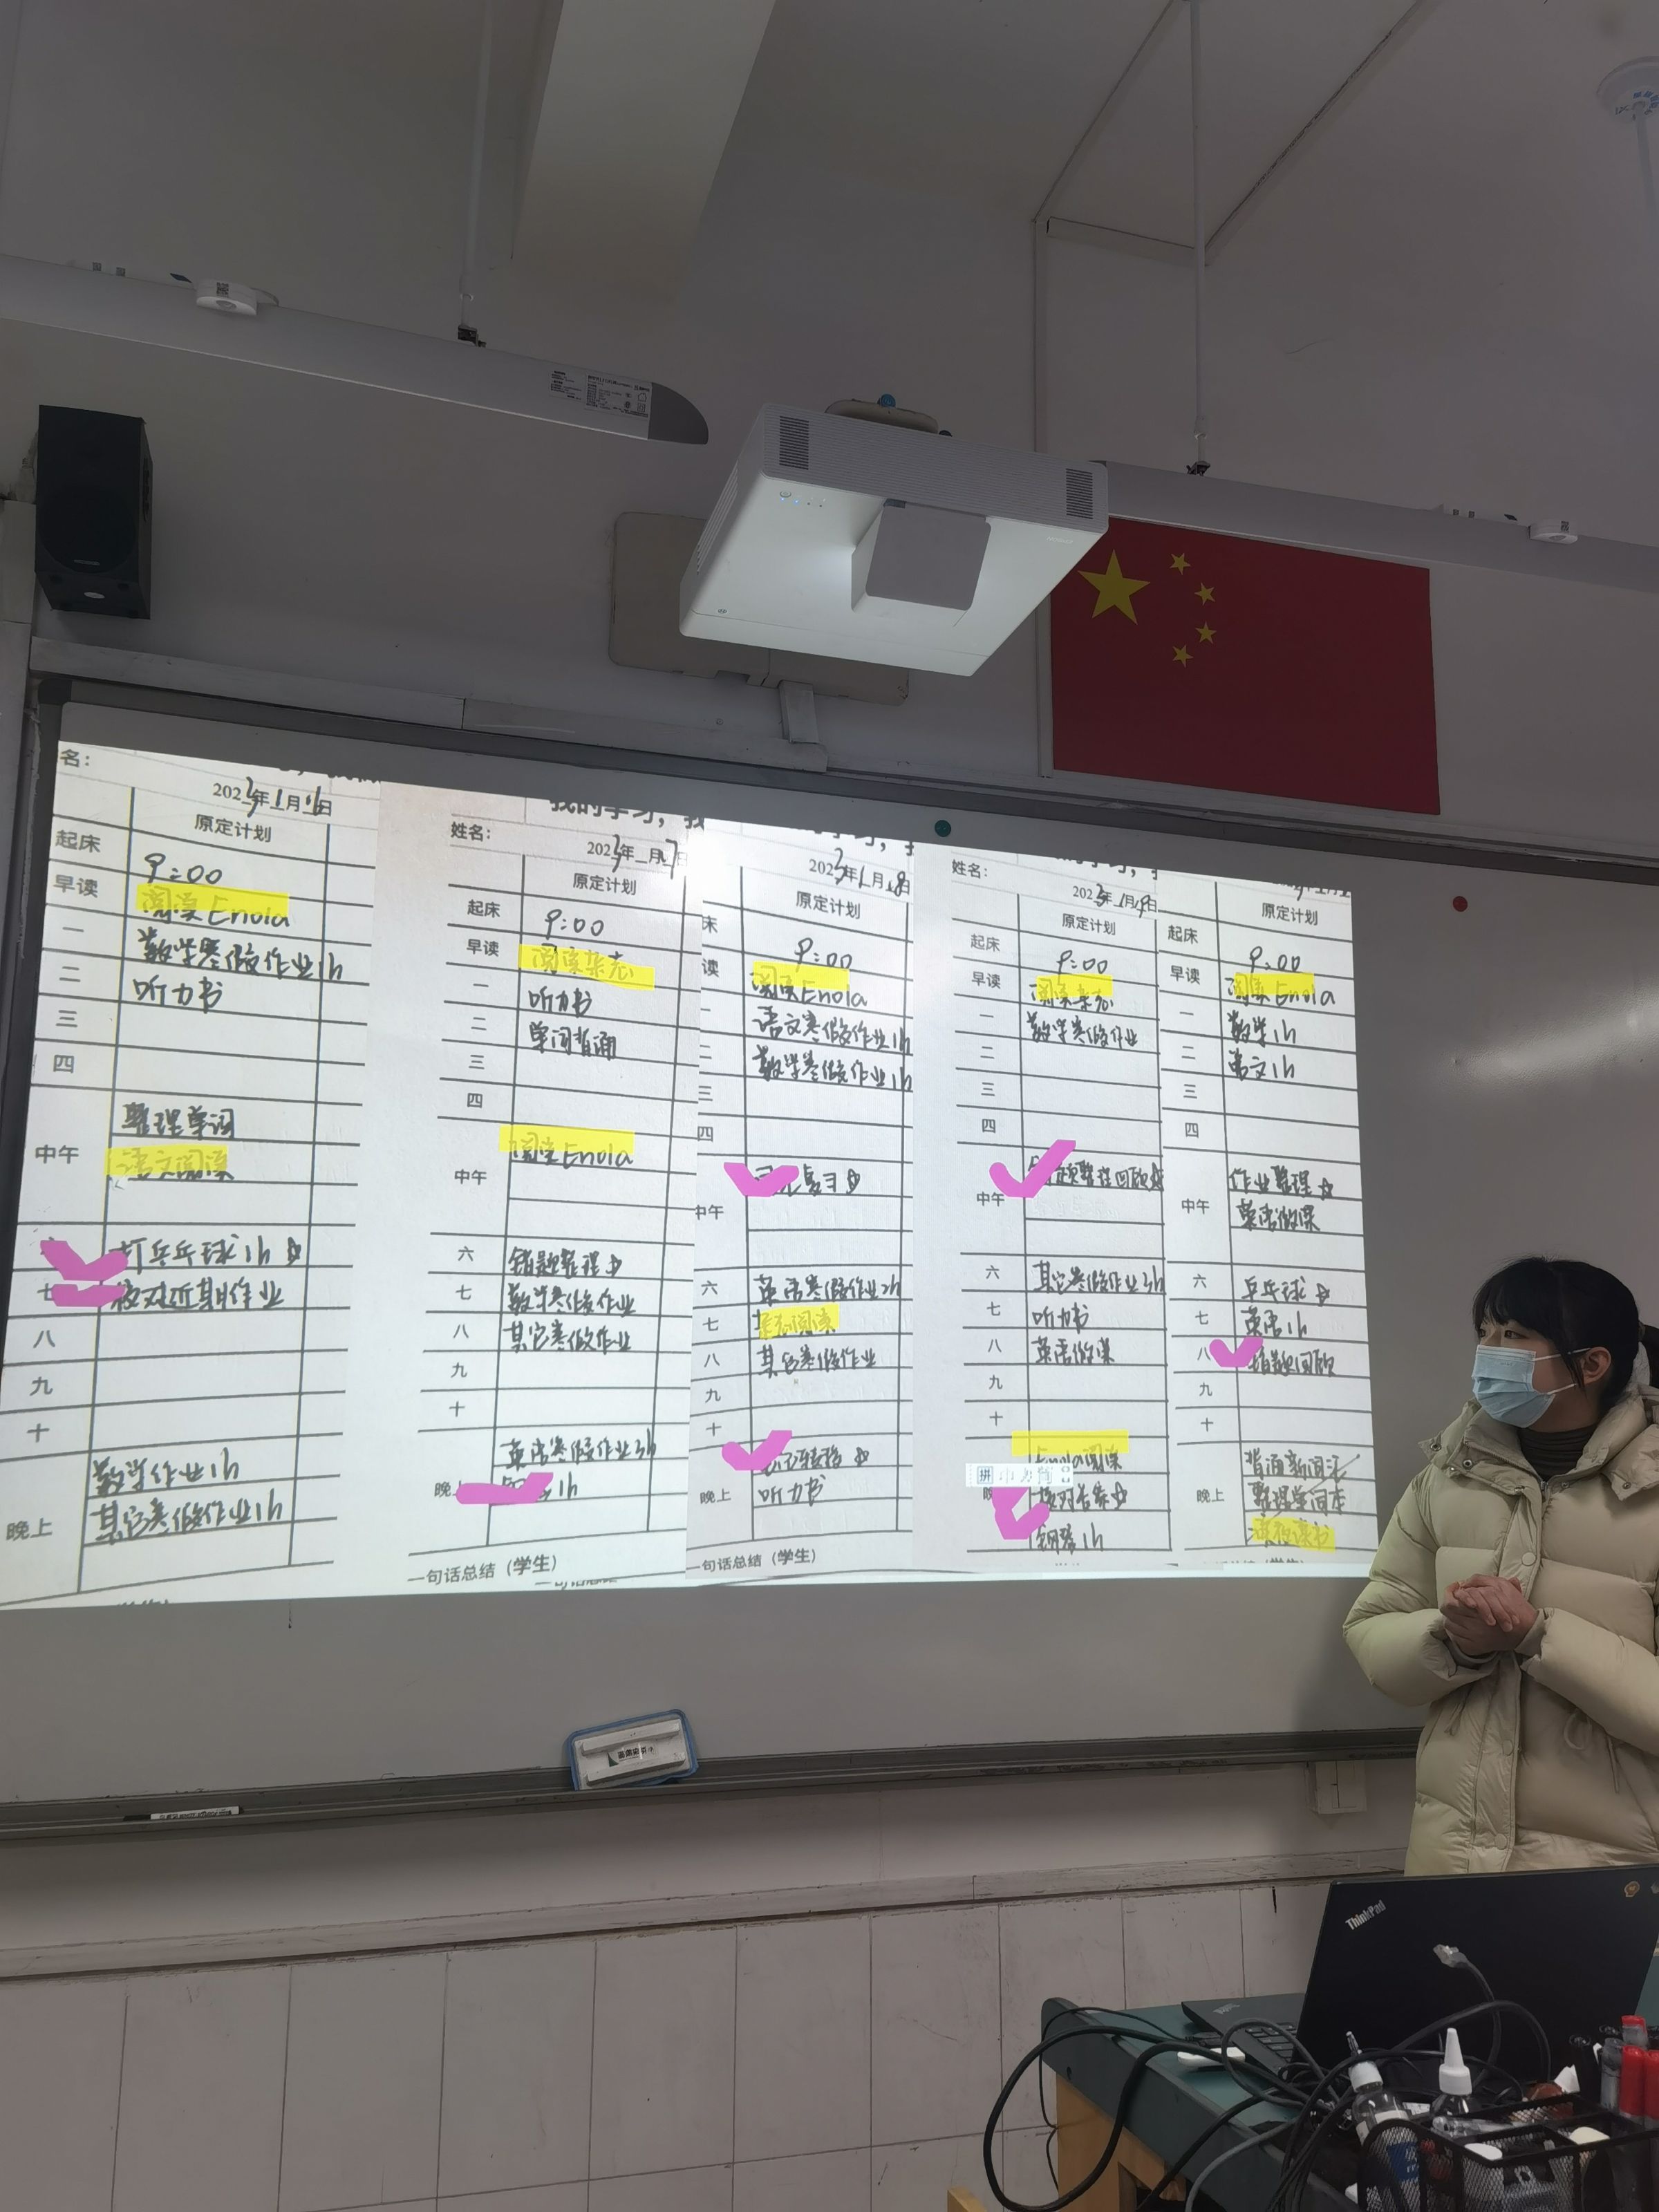 名:
2023年1月16日
原定计划
起床
9:00
早读
阅读Enola
一
数学寒假作业1h
二
听力书
三
四
中午
整理单词
语文阅读
打乒乓球1h☆
七
核对近期作业
八
九
十
晚上
数学作业1h
其它寒假作业1h
我的学习,我
姓名:
2023年 月17日
原定计划
起床
9:00
早读
阅读杂志
一
听力书
二
单词背诵
三
四
中午
阅读Enola
六
错题整理☆
七
数学寒假作业
八
其它寒假作业
九
十
晚上
英语寒假作业3h
1h
一句话总结(学生)
2023年1月18日
原定计划
床
9:00
读
阅读Enola
一
语文寒假作业1h
二
数学寒假作业1h
三
四
中午
复习☆
六
英语寒假作业2h
七
阅读
八
其它寒假作业
九
十
晚上
☆
听力书
一句话总结(学生)
姓名:
2023年1月19日
原定计划
起床
9:00
早读
阅读杂志
一
数学寒假作业
二
三
四
中午
错题整理回顾☆
六
其它寒假作业3h
七
听力书
八
英语微课
九
十
Enola阅读
拼 中 简
晚
核对答案☆
钢琴1h
原定计划
起床
9:00
早读
阅读Enola
一
数学1h
二
语文1h
三
四
中午
作业整理☆
英语微课
六
乒乓球☆
七
英语1h
八
错题回顾
九
十
晚上
背诵新闻记
整理单词本
读书
ThinkPad